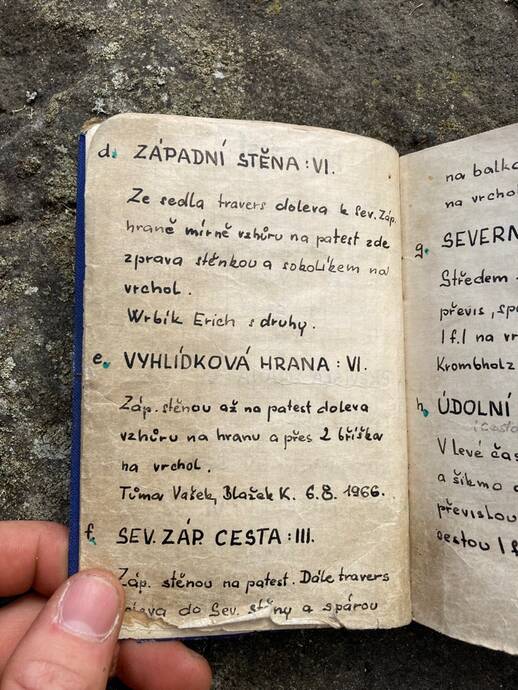 d. ZÁPADNÍ STĚNA : VI.
Ze sedla travers doleva k Sev. Záp.
hraně mírně vzhůru na patest zde
zprava stěnkou a sokolíkem na
vrchol.
Wrbík Erich s druhy.
e. VYHLÍDKOVÁ HRANA : VI.
Záp. stěnou až na patest doleva
vzhůru na hranu a přes 2 bříška
na vrchol.
Tůma Vašek, Blažek K. 6.8. 1966.
f. SEV. ZÁP. CESTA : III.
Záp. stěnou na patest. Dále travers
do Sev. stěny a spárou
na balko
na vrcho
g. SEVERN
Středem
převis, spá
1 f.l na vr
Krombholz
h. ÚDOLNÍ
V levé čas
a šikmo
převislou
cestou 1 f